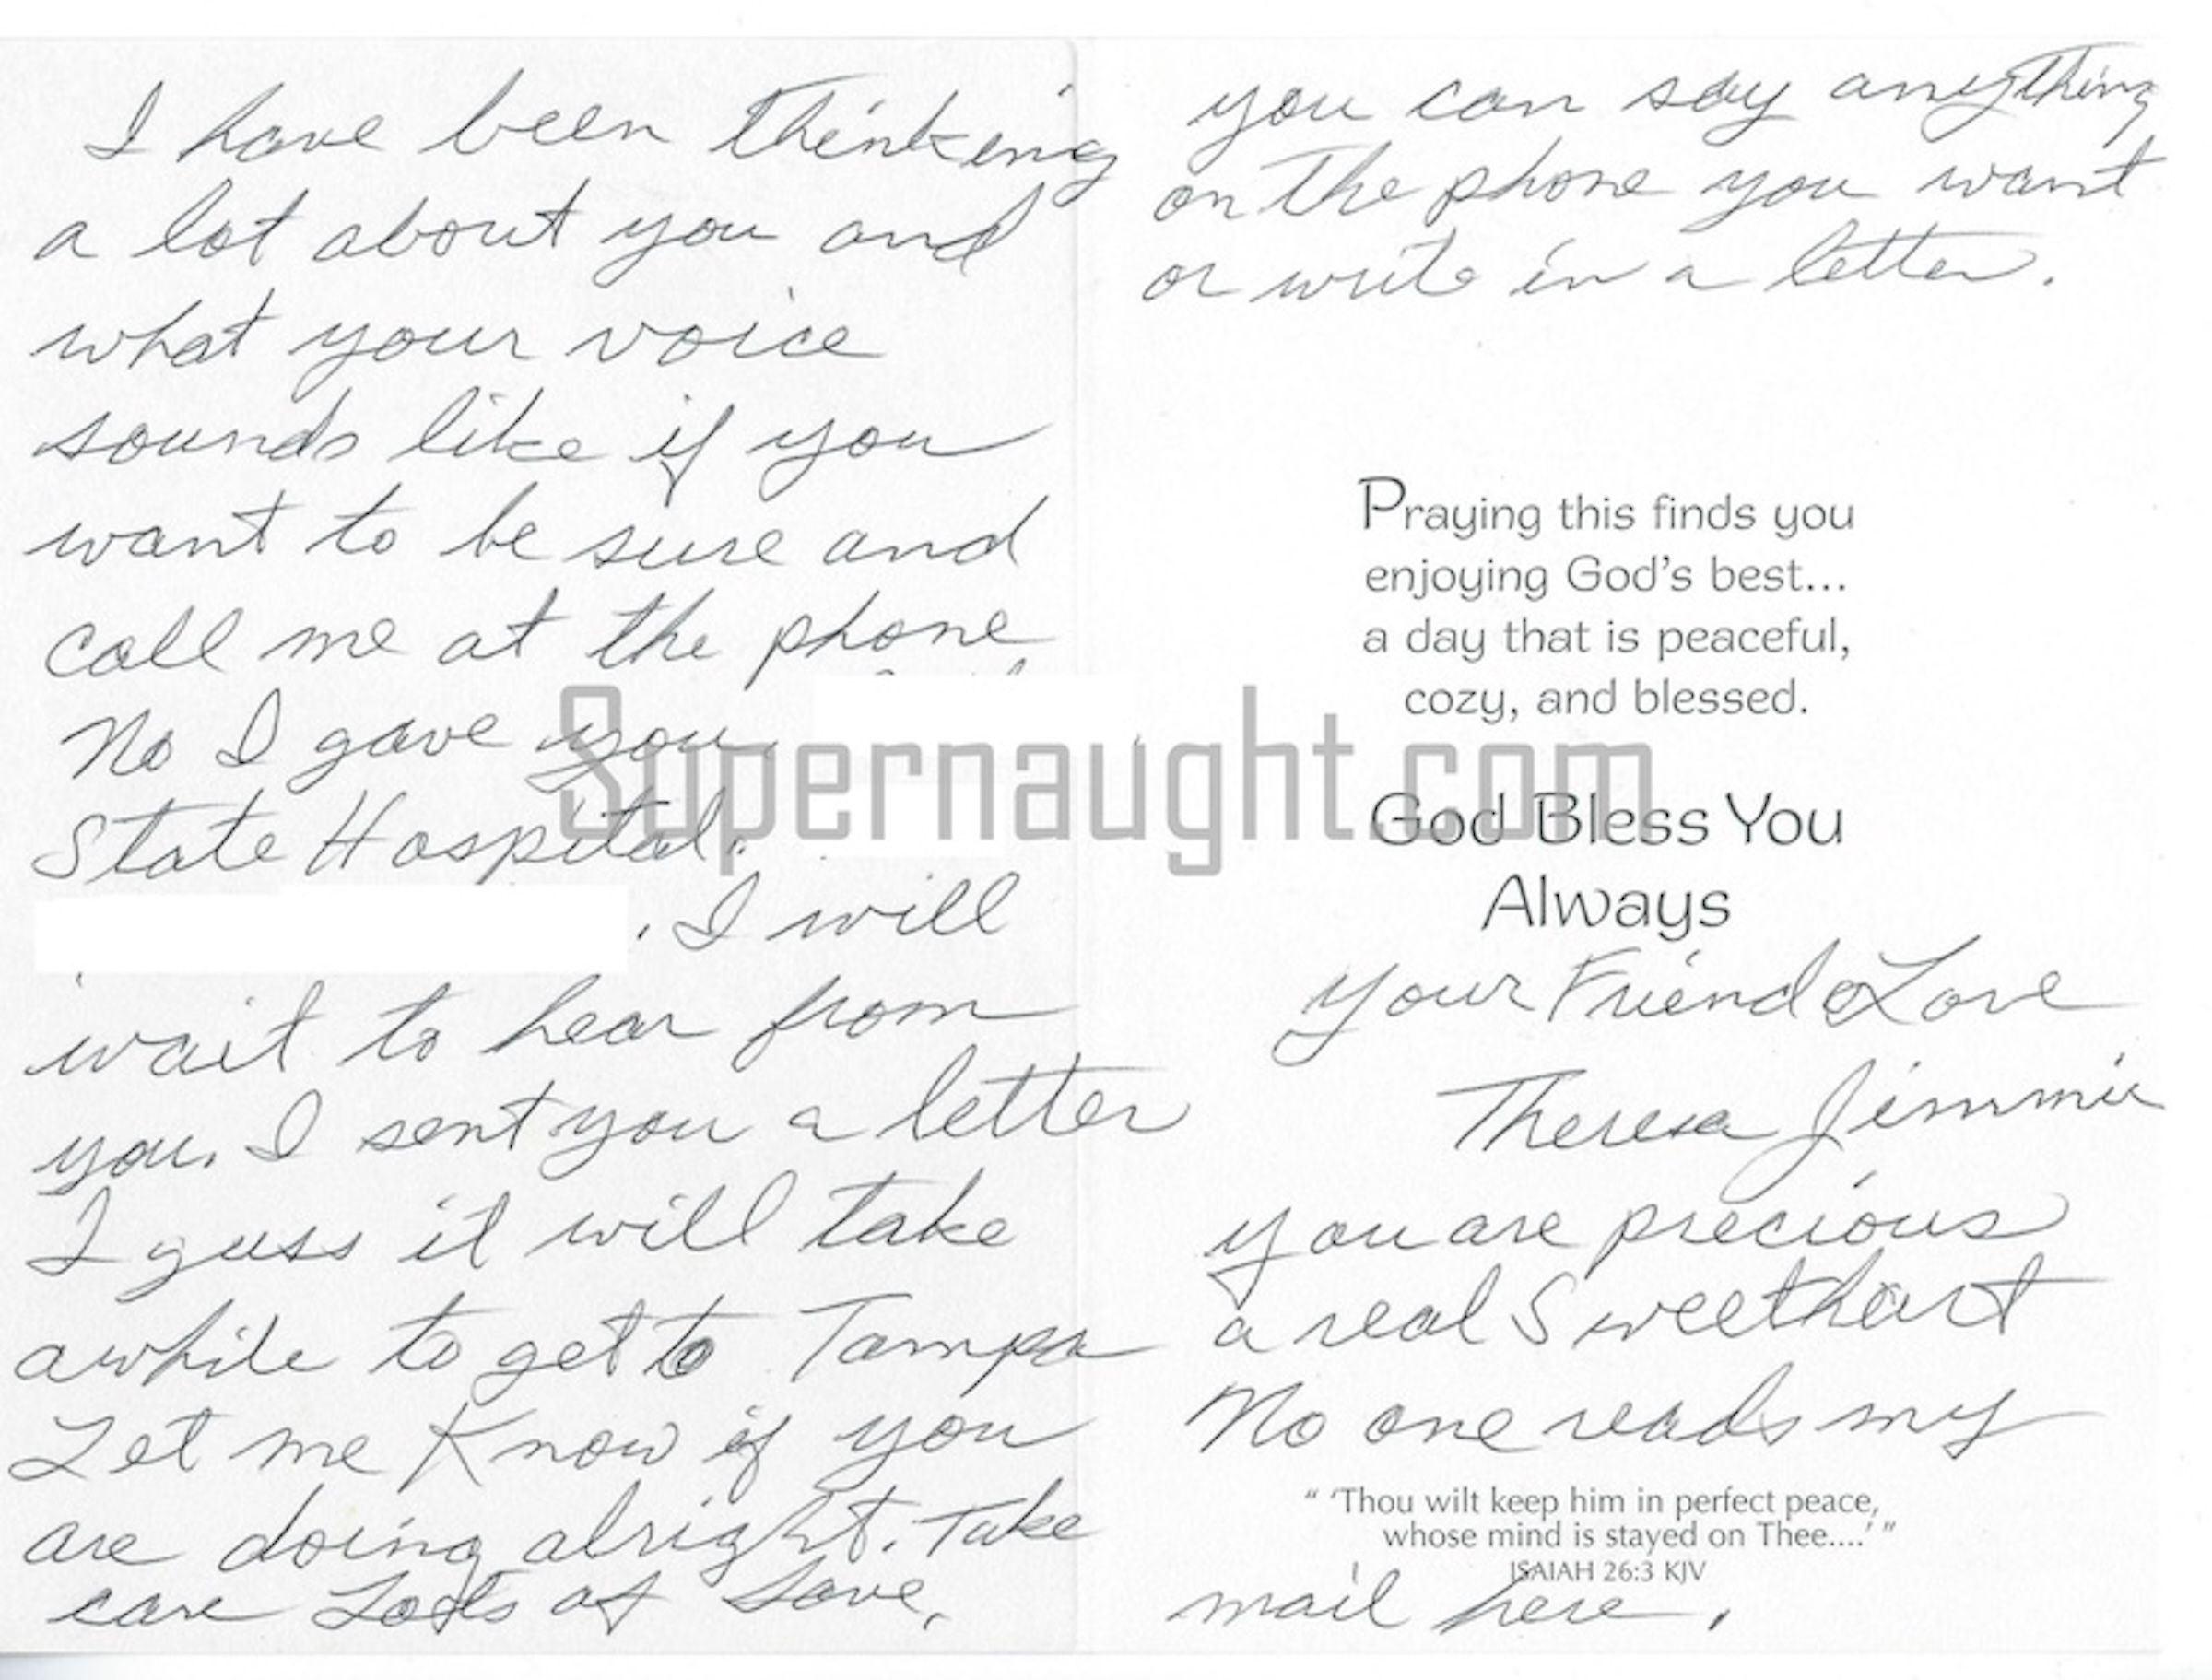 I have been thinking
a lot about you and
what your voice
sounds like if you
want to be sure and
call me at the phone
No I gave you.
State Hospital.
. I will
wait to hear from
you. I sent you a letter
I guss it will take
awhile to get to Tampa
Let me Know if you
are doing alright. Take
care Lots of Love,
you can say anything
on the phone you want
or write in a letter.
Praying this finds you
enjoying God's best...
a day that is peaceful,
cozy, and blessed.
Supernaught.com
God Bless You
Always
your Friend & Love
Theresa Jimmie
you are precious
a real Sweethart
No one reads my
" 'Thou wilt keep him in perfect peace,
whose mind is stayed on Thee....' "
ISAIAH 26:3 KJV
mail here.